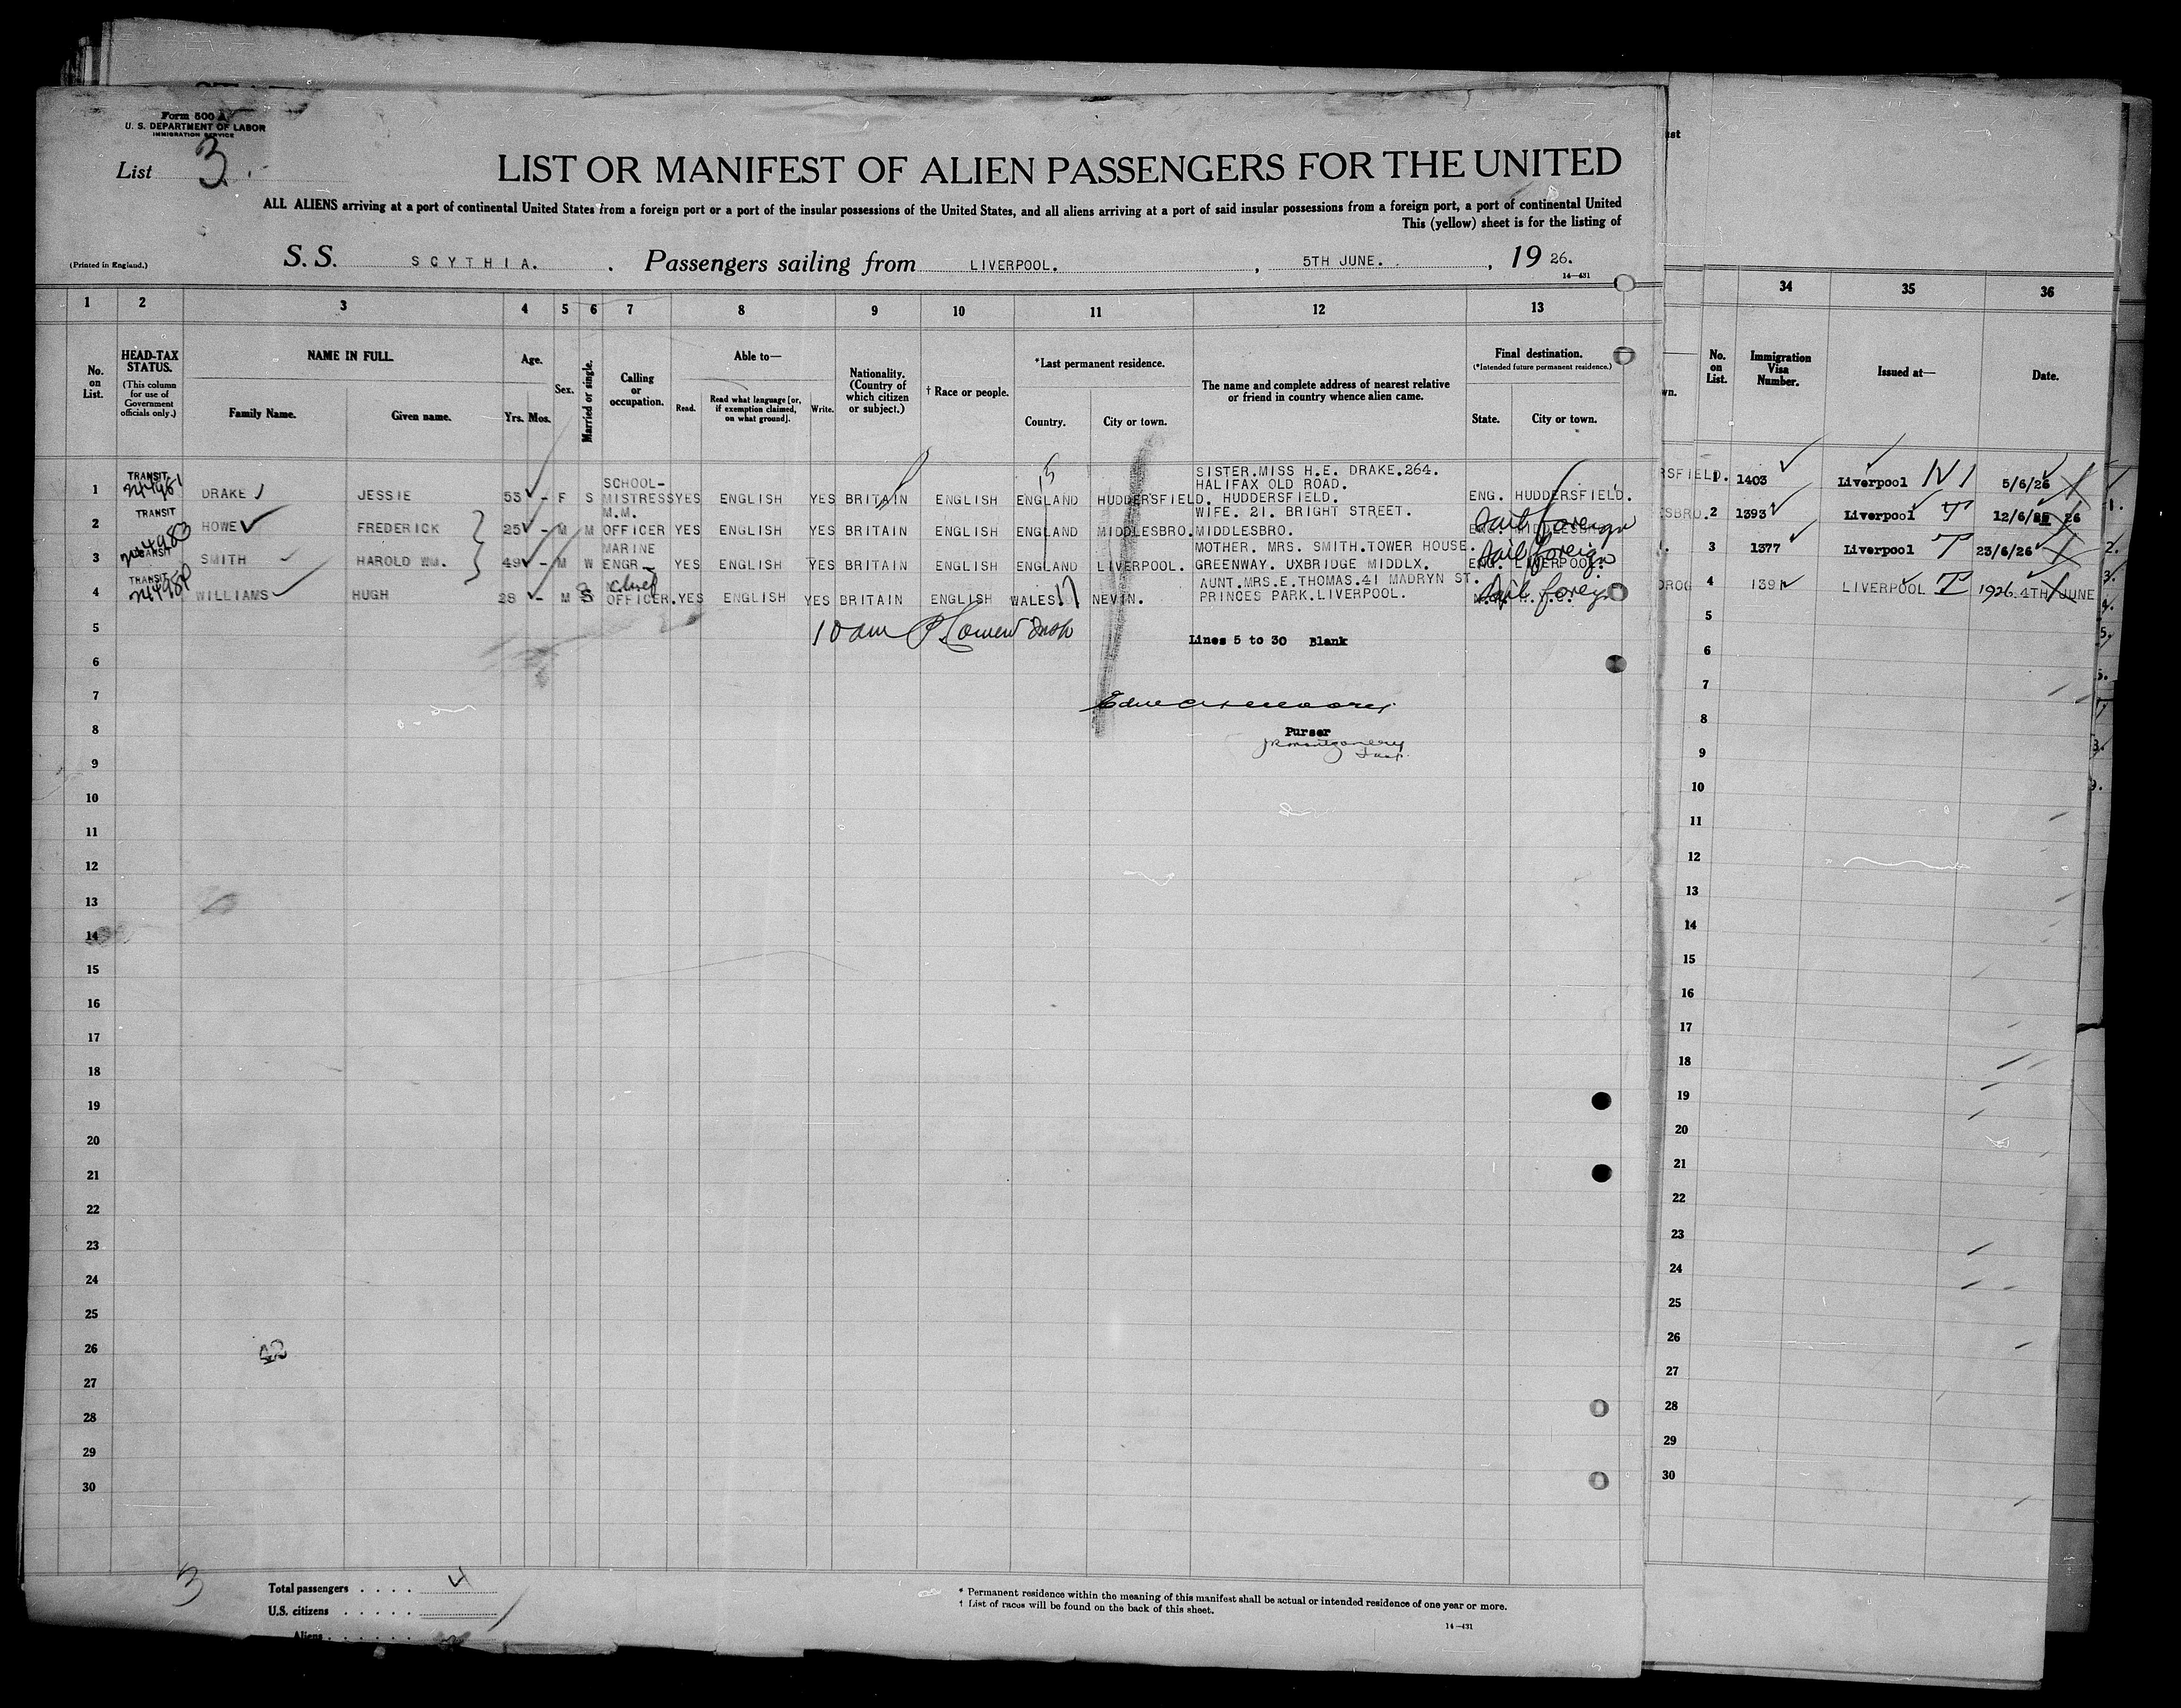 Form 500 A
U. S. DEPARTMENT OF LABOR
IMMIGRATION SERVICE
List 3.
LIST OR MANIFEST OF ALIEN PASSENGERS FOR THE UNITED
ALL ALIENS arriving at a port of continental United States from a foreign port or a port of the insular possessions of the United States, and all aliens arriving at a port of said insular possessions from a foreign port, a port of continental United
This (yellow) sheet is for the listing of
(Printed in England.)
S. S. SCYTHIA. Passengers sailing from LIVERPOOL. , 5TH JUNE. , 19 26.
14—431
1 2 3 4 5 6 7 8 9 10 11 12 13 34 35 36
No. on List.
HEAD-TAX STATUS.
(This column for use of Government officials only.)
NAME IN FULL.
Family Name. Given name.
Age.
Yrs. Mos.
Sex.
Married or single.
Calling or occupation.
Able to—
Read. Read what language [or, if exemption claimed, on what ground]. Write.
Nationality. (Country of which citizen or subject.)
† Race or people.
*Last permanent residence.
Country. City or town.
The name and complete address of nearest relative or friend in country whence alien came.
Final destination.
(*Intended future permanent residence.)
State. City or town.
No. on List.
Immigration Visa Number.
Issued at—
Date.
1 TRANSIT DRAKE JESSIE 53 - F S SCHOOL-MISTRESS YES ENGLISH YES BRITAIN ENGLISH ENGLAND HUDDERSFIELD. SISTER.MISS H.E. DRAKE.264. HALIFAX OLD ROAD. HUDDERSFIELD. ENG. HUDDERSFIELD. 1 1403 Liverpool 5/6/26
2 TRANSIT HOWE FREDERICK 25 - M M M.M. OFFICER YES ENGLISH YES BRITAIN ENGLISH ENGLAND MIDDLESBRO. WIFE. 21. BRIGHT STREET. MIDDLESBRO. Sail foreign 2 1393 Liverpool T 12/6/ 26
3 TRANSIT SMITH HAROLD WM. 49 - M W MARINE ENGR- YES ENGLISH YES BRITAIN ENGLISH ENGLAND LIVERPOOL. MOTHER. MRS. SMITH.TOWER HOUSE. GREENWAY. UXBRIDGE MIDDLX. ENG. LIVERPOOL. Sail foreign 3 1377 Liverpool T 23/6/26
4 TRANSIT WILLIAMS HUGH 28 - M S Chief OFFICER. YES ENGLISH YES BRITAIN ENGLISH WALES NEVIN. AUNT.MRS.E.THOMAS.41 MADRYN ST. PRINCES PARK.LIVERPOOL. Sail foreign 4 LIVERPOOL T 1926. 4TH JUNE
5 10 am Lines 5 to 30 Blank 5
6 6
7 7
8 Purser 8
9 9
10 10
11 11
12 12
13 13
14 14
15 15
16 16
17 17
18 18
19 19
20 20
21 21
22 22
23 23
24 24
25 25
26 26
27 27
28 28
29 29
30 30
3
Total passengers . . . . 4
U.S. citizens . . . . .
Aliens . . . . . .
* Permanent residence within the meaning of this manifest shall be actual or intended residence of one year or more.
† List of races will be found on the back of this sheet.
14—431